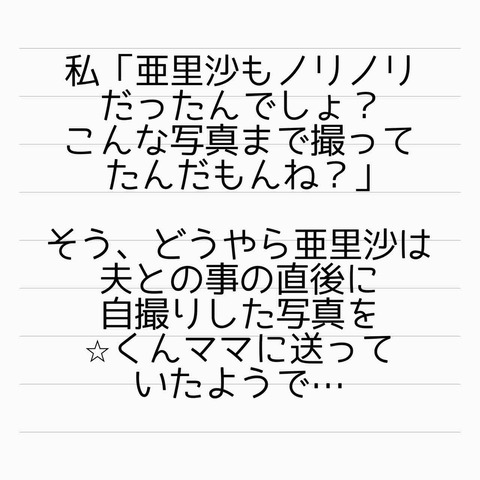 私「亜里沙もノリノリ
だったんでしょ？
こんな写真まで撮って
たんだもんね？」
そう、どうやら亜里沙は
夫との事の直後に
自撮りした写真を
☆くんママに送って
いたようで…